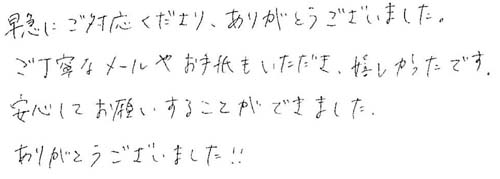 早急にご対応くださり、ありがとうございました。
ご丁寧なメールやお手紙もいただき、嬉しかったです。
安心してお願いすることができました。
ありがとうございました!!